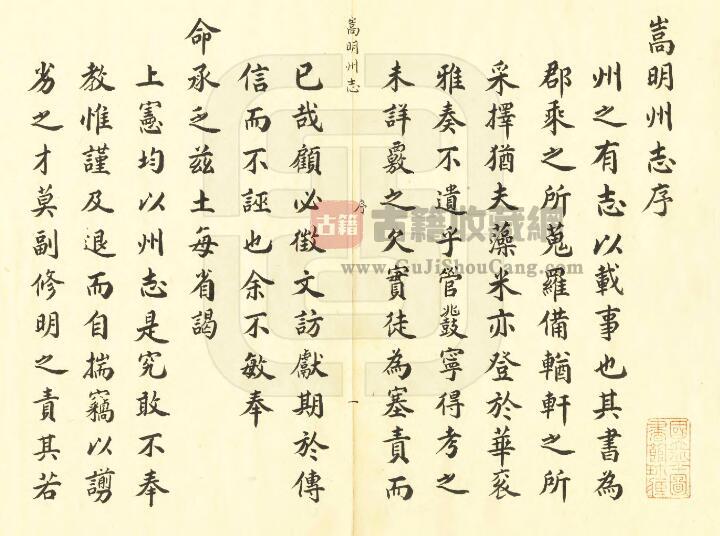 嵩明州志序
州之有志以載事也其書為
郡乘之所蒐羅備輶軒之所
采擇猶夫藻米亦登於華袞
雅奏不遺乎管鼗寧得考之
未詳覈之欠實徒為塞責而
嵩明州志
序
一
已哉顧必徵文訪獻期於傳
信而不誣也余不敏奉
命承乏茲土每省謁
上憲均以州志是究敢不奉
教惟謹及退而自揣竊以謭
劣之才莫副修明之責其若
古籍
古籍收藏網
www.GuJiShouCang.com